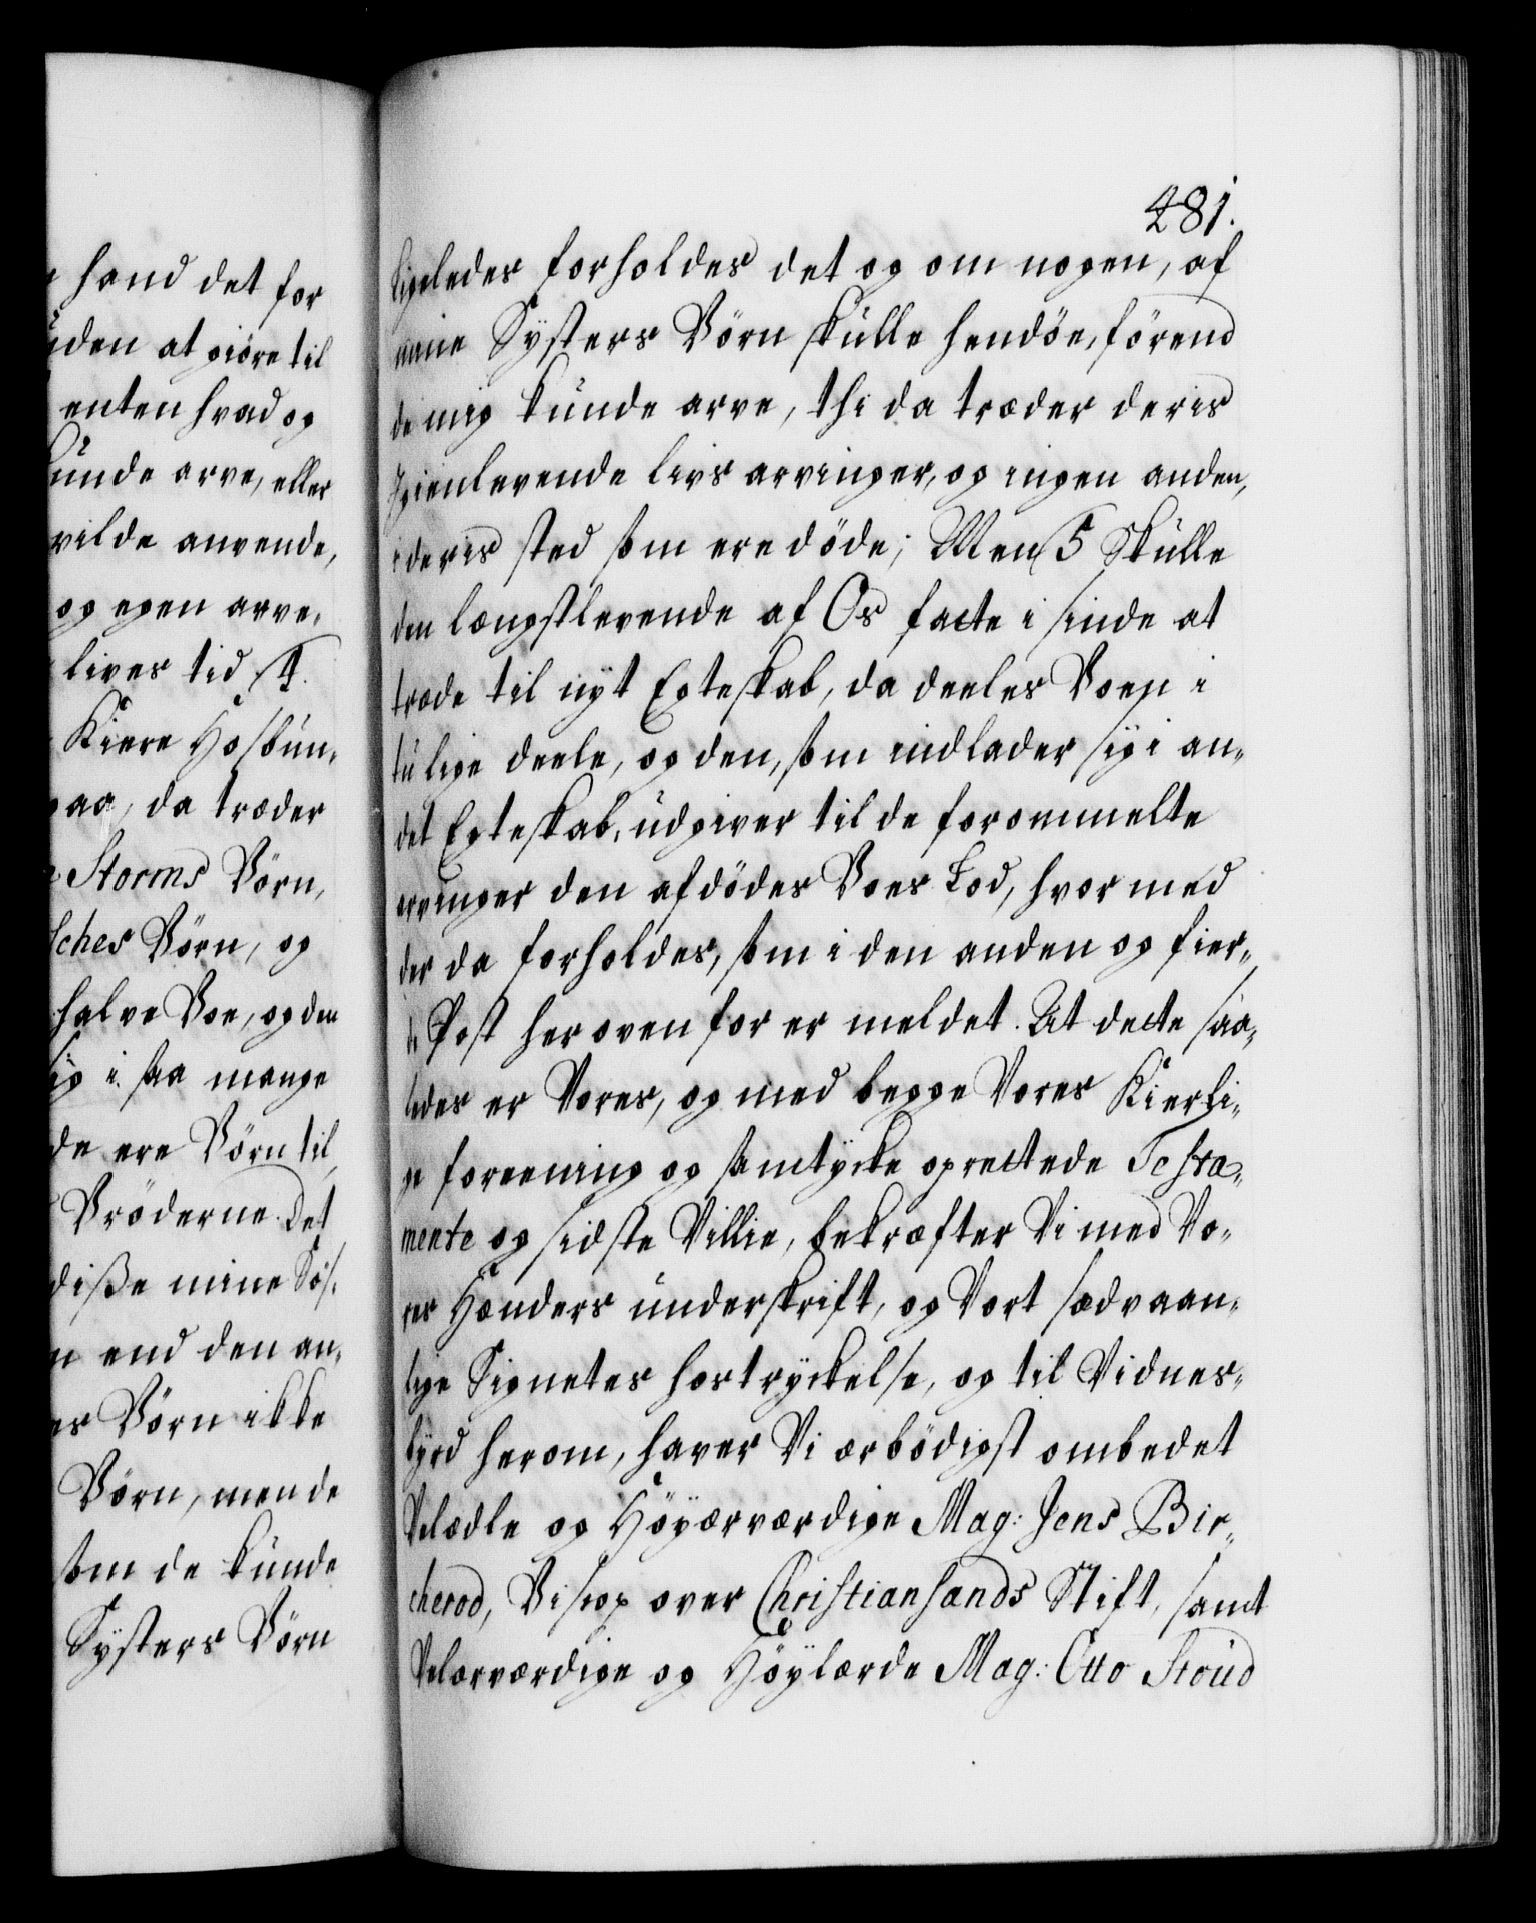 hand det for
uden at giöre til
enten hvad og
kunde arve, eller
vilde anvende,
og egen arve,
lives tid /4.
Kiere Hosbun-
paa, da træder
Storms Börn,
sches Börn, og
halve Boe, og den
sig i saa mange
de ere Börn til,
Bröderne. Det
diße mine Sös-
end den an-
es Börn ikke
Börn, men de
som de kunde
Systers Börn
281.
ligeledes forholdes det og om nogen, af
mine Systers Börn skulle hendöe, förend
de mig kunde arve, thi da træder deris
Igienlevende livs arvinger, og ingen anden,
i deris sted som ere döde; Men /5 Skulle
den længstlevende af Os facte i sinde at
træde til nyt Egteskab, da deeles Boen i
tu lige deele, og den, som indlader sig i an-
det Egteskab, udgiver til de forommelte
arvinger den afdödes Boes Lod, hvor med
der da forholdes, som i den anden og fier-
de Post her oven for er meldet. At dette saa-
ledes er Vores, og med begge Vores Kierli-
ge foreening og samtycke oprettede Testa-
mente og sidste Villie, bekræfter Vi med Vo-
res Hænders underskrift, og Vort sædvaan-
lige Signetes hostryckelse, og til Vidnes-
byrd herom, haver Vi ærbödigst ombedet
Velædle og Höyærværdige Mag: Jens Bir-
cherod, Biscop over Christiansands Stift, samt
Velærværdige og Höylærde Mag: Otto Stoud